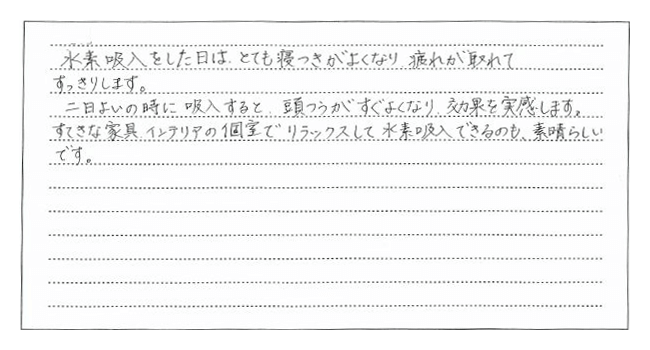 水素吸入をした日は、とても寝つきがよくなり、疲れが取れて
すっきりします。
二日よいの時に吸入すると、頭つうがすぐよくなり、効果を実感します。
すてきな家具、インテリアの個室でリラックスして水素吸入できるのも、素晴らしい
です。